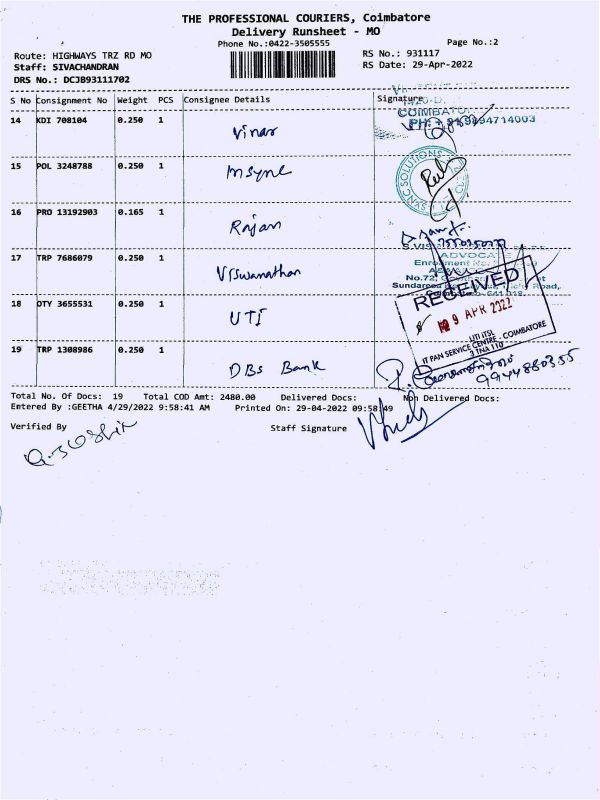 THE PROFESSIONAL COURIERS, Coimbatore
Delivery Runsheet - MO
Phone No.:0422-3505555
Page No.:2
Route: HIGHWAYS TRZ RD MO
RS No.: 931117
Staff: SIVACHANDRAN
RS Date: 29-Apr-2022
DRS No.: DCJB93111702
S No Consignment No Weight PCS Consignee Details Signature
COIMBATO
14 KDI 708104 0.250 1 Vinar
15 POL 3248788 0.250 1 msync
SYNC SOLUTIONS
16 PRO 13192903 0.165 1 Rajan
17 TRP 7686079 0.250 1 Viswanathan
ADVOCATE
No.72,
RECEIVED
18 DTY 3655531 0.250 1 UTI
UTI ITSL
IT PAN SERVICE CENTRE - COIMBATORE
19 TRP 1308986 0.250 1 DBS Bank
9944880355
Total No. Of Docs: 19 Total COD Amt: 2480.00 Delivered Docs: Non Delivered Docs:
Entered By :GEETHA 4/29/2022 9:58:41 AM Printed On: 29-04-2022 09:58:49
Verified By Staff Signature